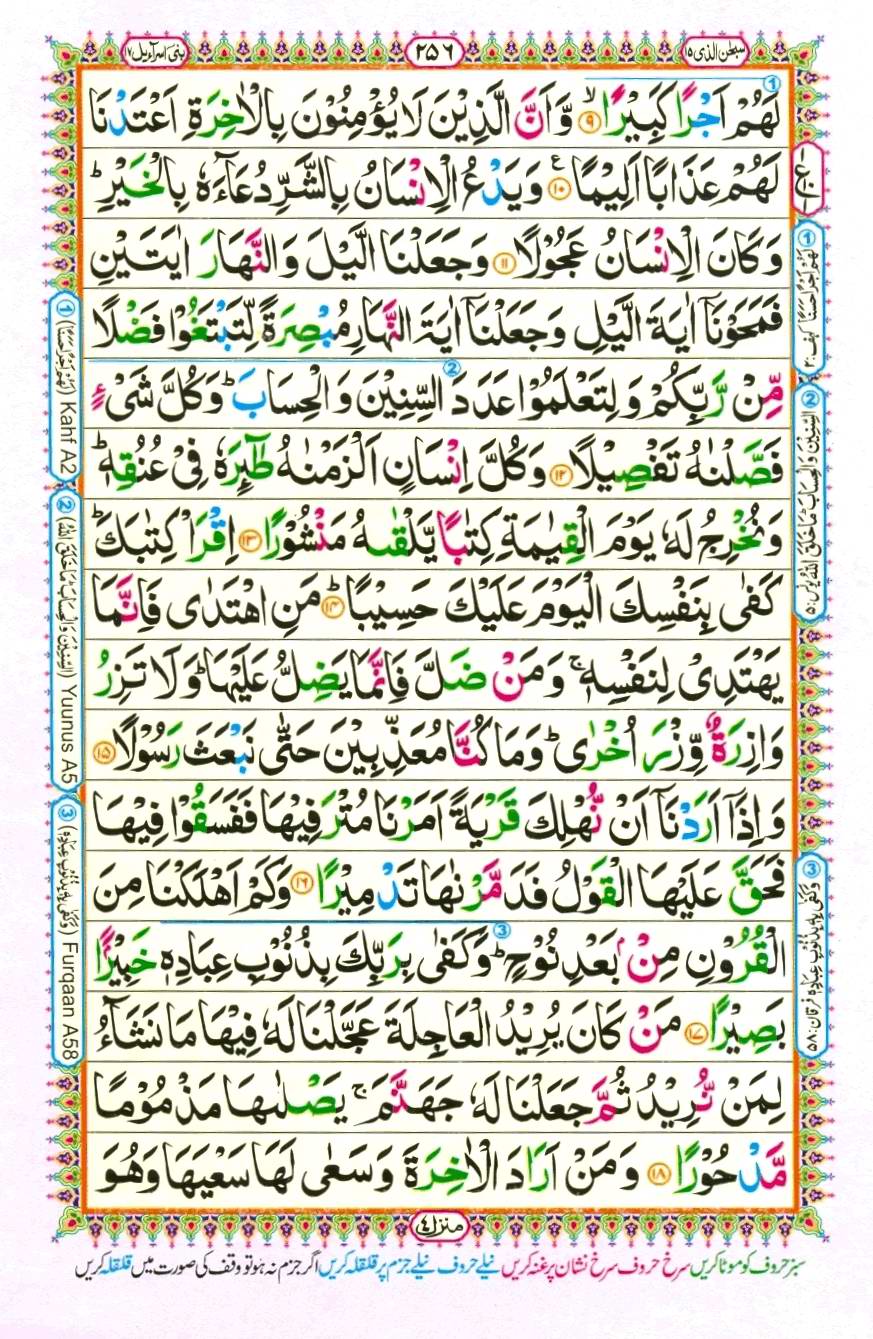 سبحٰن الذی ۱۵
۲۵۶
بنی اسرآءیل ۱۷
لَهُمْ اَجْرًا كَبِيْرًا ۙ﴿۹﴾ وَّاَنَّ الَّذِيْنَ لَا يُؤْمِنُوْنَ بِالْاٰخِرَةِ اَعْتَدْنَا
لَهُمْ عَذَابًا اَلِيْمًا ﴿۱۰﴾ۧ وَيَدْعُ الْاِنْسَانُ بِالشَّرِّ دُعَآءَهٗ بِالْخَيْرِ ؕ
وَكَانَ الْاِنْسَانُ عَجُوْلًا ﴿۱۱﴾ وَجَعَلْنَا الَّيْلَ وَالنَّهَارَ اٰيَتَيْنِ
فَمَحَوْنَاۤ اٰيَةَ الَّيْلِ وَجَعَلْنَاۤ اٰيَةَ النَّهَارِ مُبْصِرَةً لِّتَبْتَغُوْا فَضْلًا
مِّنْ رَّبِّكُمْ وَلِتَعْلَمُوْا عَدَدَ السِّنِيْنَ وَالْحِسَابَ ؕ وَكُلَّ شَیْءٍ
فَصَّلْنٰهُ تَفْصِيْلًا ﴿۱۲﴾ وَكُلَّ اِنْسَانٍ اَلْزَمْنٰهُ طٰٓئِرَهٗ فِیْ عُنُقِهٖ ؕ
وَنُخْرِجُ لَهٗ يَوْمَ الْقِيٰمَةِ كِتٰبًا يَّلْقٰىهُ مَنْشُوْرًا ﴿۱۳﴾ اِقْرَاْ كِتٰبَكَ ؕ
كَفٰی بِنَفْسِكَ الْيَوْمَ عَلَيْكَ حَسِيْبًا ؕ﴿۱۴﴾ مَنِ اهْتَدٰی فَاِنَّمَا
يَهْتَدِیْ لِنَفْسِهٖ ۚ وَمَنْ ضَلَّ فَاِنَّمَا يَضِلُّ عَلَيْهَا ؕ وَلَا تَزِرُ
وَازِرَةٌ وِّزْرَ اُخْرٰی ؕ وَمَا كُنَّا مُعَذِّبِيْنَ حَتّٰی نَبْعَثَ رَسُوْلًا ﴿۱۵﴾
وَاِذَاۤ اَرَدْنَاۤ اَنْ نُّهْلِكَ قَرْيَةً اَمَرْنَا مُتْرَفِيْهَا فَفَسَقُوْا فِيْهَا
فَحَقَّ عَلَيْهَا الْقَوْلُ فَدَمَّرْنٰهَا تَدْمِيْرًا ﴿۱۶﴾ وَكَمْ اَهْلَكْنَا مِنَ
الْقُرُوْنِ مِنْۢ بَعْدِ نُوْحٍ ؕ وَكَفٰی بِرَبِّكَ بِذُنُوْبِ عِبَادِهٖ خَبِيْرًۢا
بَصِيْرًا ﴿۱۷﴾ مَنْ كَانَ يُرِيْدُ الْعَاجِلَةَ عَجَّلْنَا لَهٗ فِيْهَا مَا نَشَآءُ
لِمَنْ نُّرِيْدُ ثُمَّ جَعَلْنَا لَهٗ جَهَنَّمَ ۚ يَصْلٰىهَا مَذْمُوْمًا
مَّدْحُوْرًا ﴿۱۸﴾ وَمَنْ اَرَادَ الْاٰخِرَةَ وَسَعٰی لَهَا سَعْيَهَا وَهُوَ
① لَهُمْ اَجْرًا حَسَنًا كهف: ۲
② السِّنِيْنَ وَالْحِسَابَ ؕ مَا خَلَقَ اللّٰهُ یونس: ۵
③ وَكَفٰی بِهٖ بِذُنُوْبِ عِبَادِهٖ فرقان: ۵۸
① (لَهُمْ اَجْرًا حَسَنًا) Kahf A2
② (السِّنِيْنَ وَالْحِسَابَ مَا خَلَقَ اللّٰهُ) Yuunus A5
③ (وَكَفٰی بِهٖ بِذُنُوْبِ عِبَادِهٖ) Furqaan A58
منزل ۴
سبز حروف کو موٹا کریں سرخ حروف سرخ نشان پر غنہ کریں نیلے حروف نیلے جزم پر قلقلہ کریں اگر جزم نہ ہو تو وقف کی صورت میں قلقلہ کریں